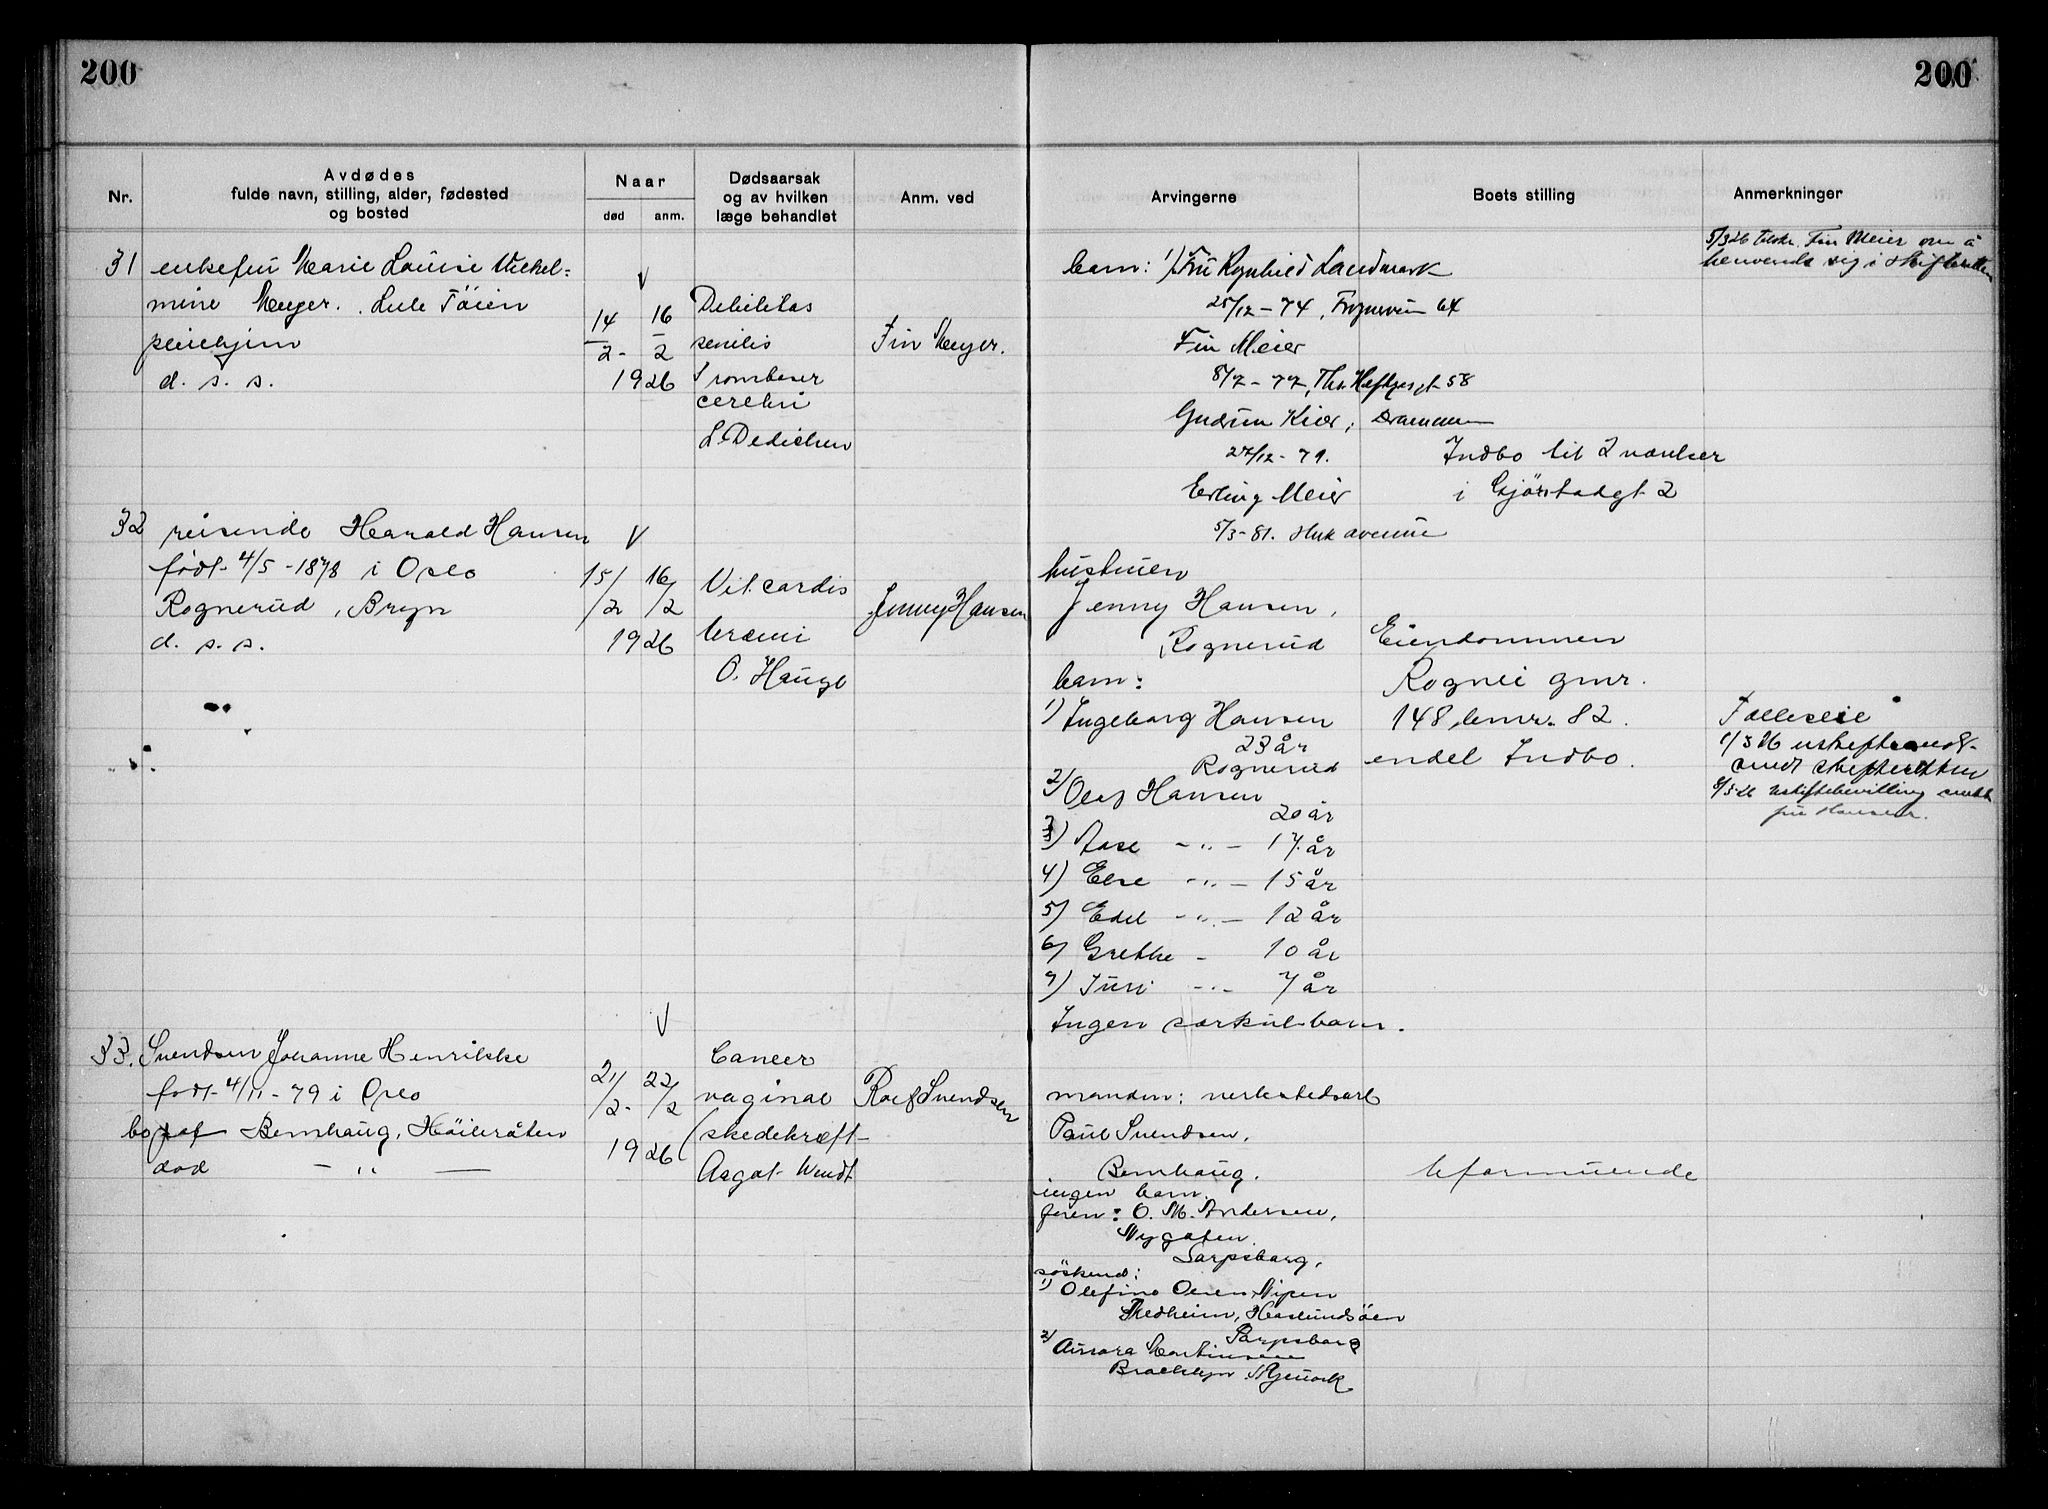 200
200
Nr.
Avdødes
fulde navn, stilling, alder, fødested
og bosted
Naar
død
anm.
Dødsaarsak
og av hvilken
læge behandlet
Anm. ved
Arvingerne
Boets stilling
Anmerkninger
31
enkefru Marie Louise Vilhel-
mine Meyer. Lille Töien
pleiehjem
d. s. s.
V
14/2- 16/2
1926
Debilitas
senilis
Tromboser
cerebri
L. Dedichen
Fin Meyer.
barn: 1) Fru Ragnhild Landmark
25/12-74, Frognervn 64
Fin Meier
8/7-77, Th. Heftyesgt 58
Gudrun Kier, Drammen
27/12-79.
Erling Meier
5/3-81. Huk avenue
Indbo til 2 værelser
i Gjörstadgt 2
5/3 26 tilskr. Fin Meier om å
henvende sig i skifteretten
32
reisende Harald Hansen
født 4/5-1878 i Oslo
Rognerud, Bryn
d. s. s.
V
15/2 16/2
1926
Vit. cordis
Uræmi
O. Hauge
Jenny Hansen
hustruen
Jenny Hansen,
Rognerud
barn:
1) Ingeborg Hansen
23 år
Rognerud
2) Olaf Hansen
20 år
3) Aase -"- 17 år
4) Else -"- 15 år
5) Edel -"- 12 år
6) Grethe - 10 år
7) Turi -"- 7 år
Ingen særkulsbarn.
Eiendommen
Rognli gnr.
148, bnr. 82.
endel Indbo.
Fælleseie
1/3 26 uskifteanok-
sendt skifteretten
8/3 26 uskiftebevilling sendt
fru Hansen.
33.
Svendsen Johanne Henrikke
født 4/11-79 i Oslo
bopæl Bernhaug, Höibråten
død -"-
V
21/2- 22/2
1926
Cancer
vaginal
(skedekræft-
Aagot Wendt
Rolf Svendsen
manden: verkstedsarb
Paul Svendsen,
Bernhaug.
ingen barn.
foren: O. M. Andersen,
Nygaten
Sarpsborg,
söskend:
1) Olefine Olsen Nipen
Solheim, Haslundsöen
Sarpsborg
2) Aurora Martinsen
Brooklyn Njework
Uformuende